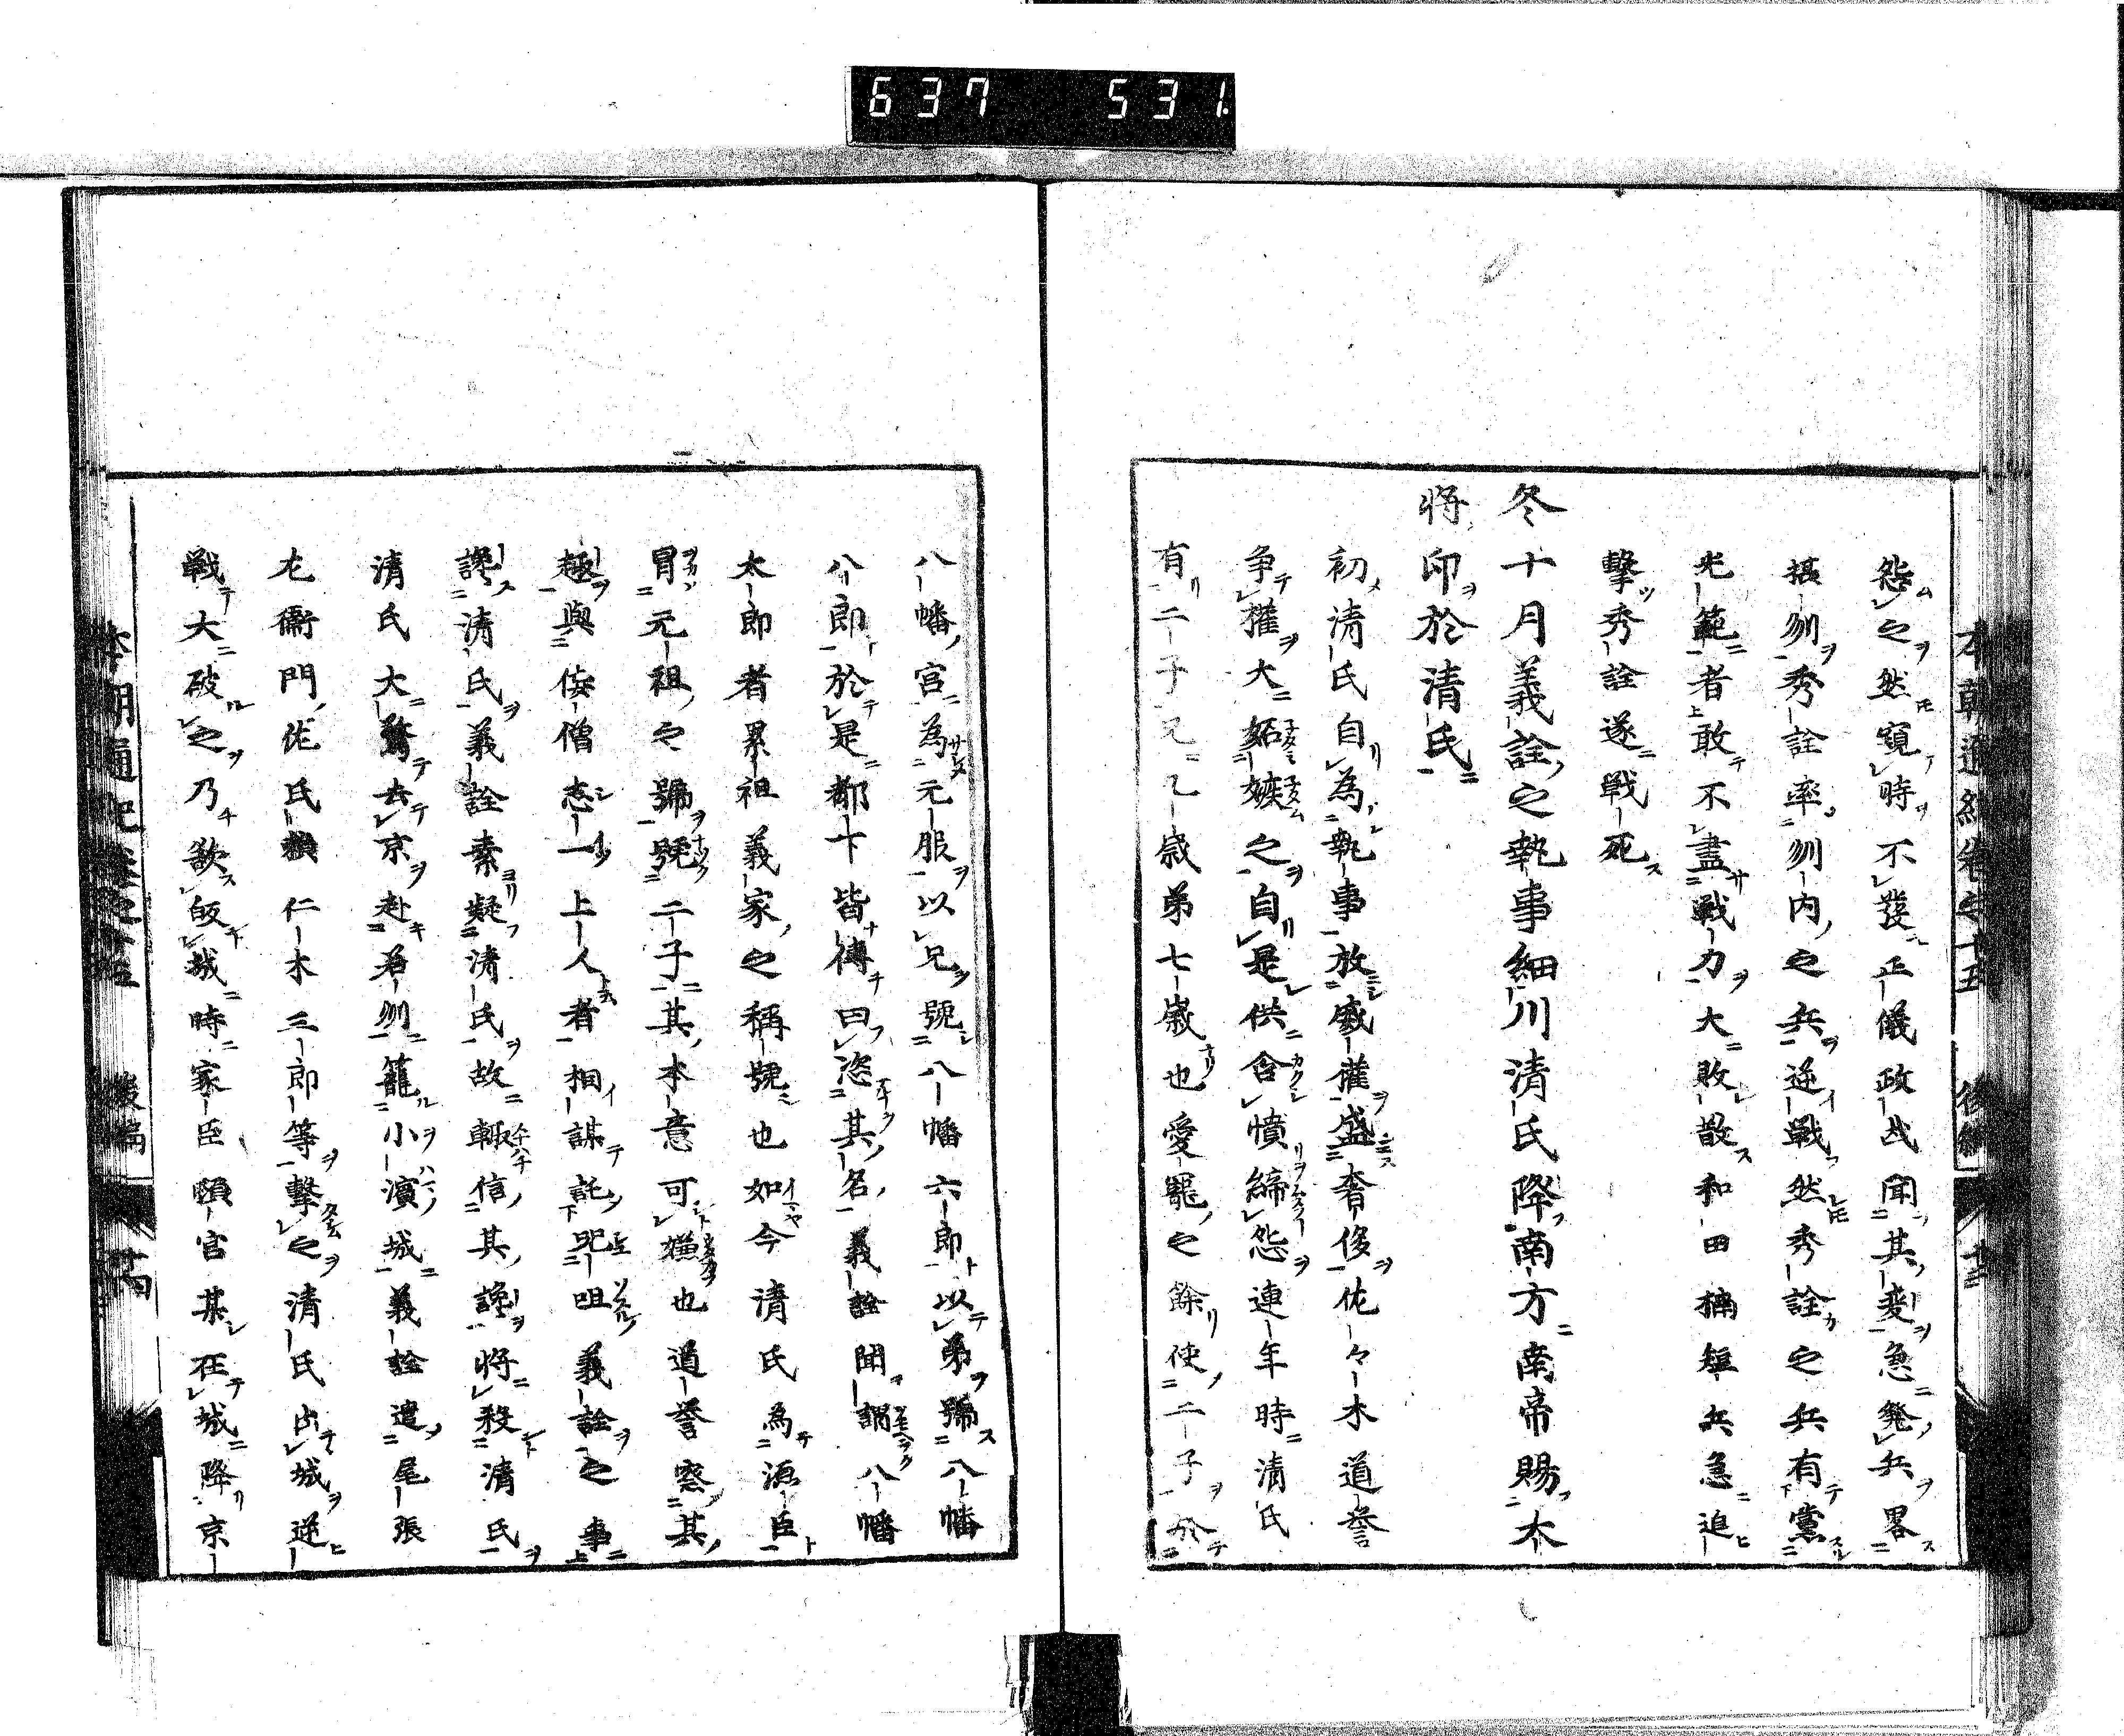 637 531
本朝通紀卷之十五 後編
怨之然窺時不發正儀政戍聞其變急發兵畧
攝刕秀詮率刕内之兵逆戰然秀詮之兵有黨
光範者敢不盡戰力大敗散和田楠短兵急追
擊秀詮遂戦死
冬十月義詮之執事細川清氏降南方南帝賜大
將印於清氏
初清氏自為執事放威權盛奢侈佐々木道誉
争權大妬嫉之自是供含憤締怨連年時清氏
有二子兄乙歳弟七歳也愛寵之餘使二子於
八幡宮為元服以兄號八幡六郎以弟號八幡
八郎於是都下皆傳曰恣其名義詮聞謂八幡
太郎者累祖義家之稱號也如今清氏為源臣
冒元祖之號號二子其本意可嫌也道誉察其
趣與倭僧志一上人者相謀託咒咀義詮之事
讒清氏義詮素疑清氏故輙信其讒將殺清氏
清氏大驚去京赴若刕籠小濱城義詮遣尾張
左衞門佐氏頼仁木三郎等擊之清氏出城逆
戰大破之乃欲皈城時家臣頓宮某在城降京
本朝通紀卷之十五 後編